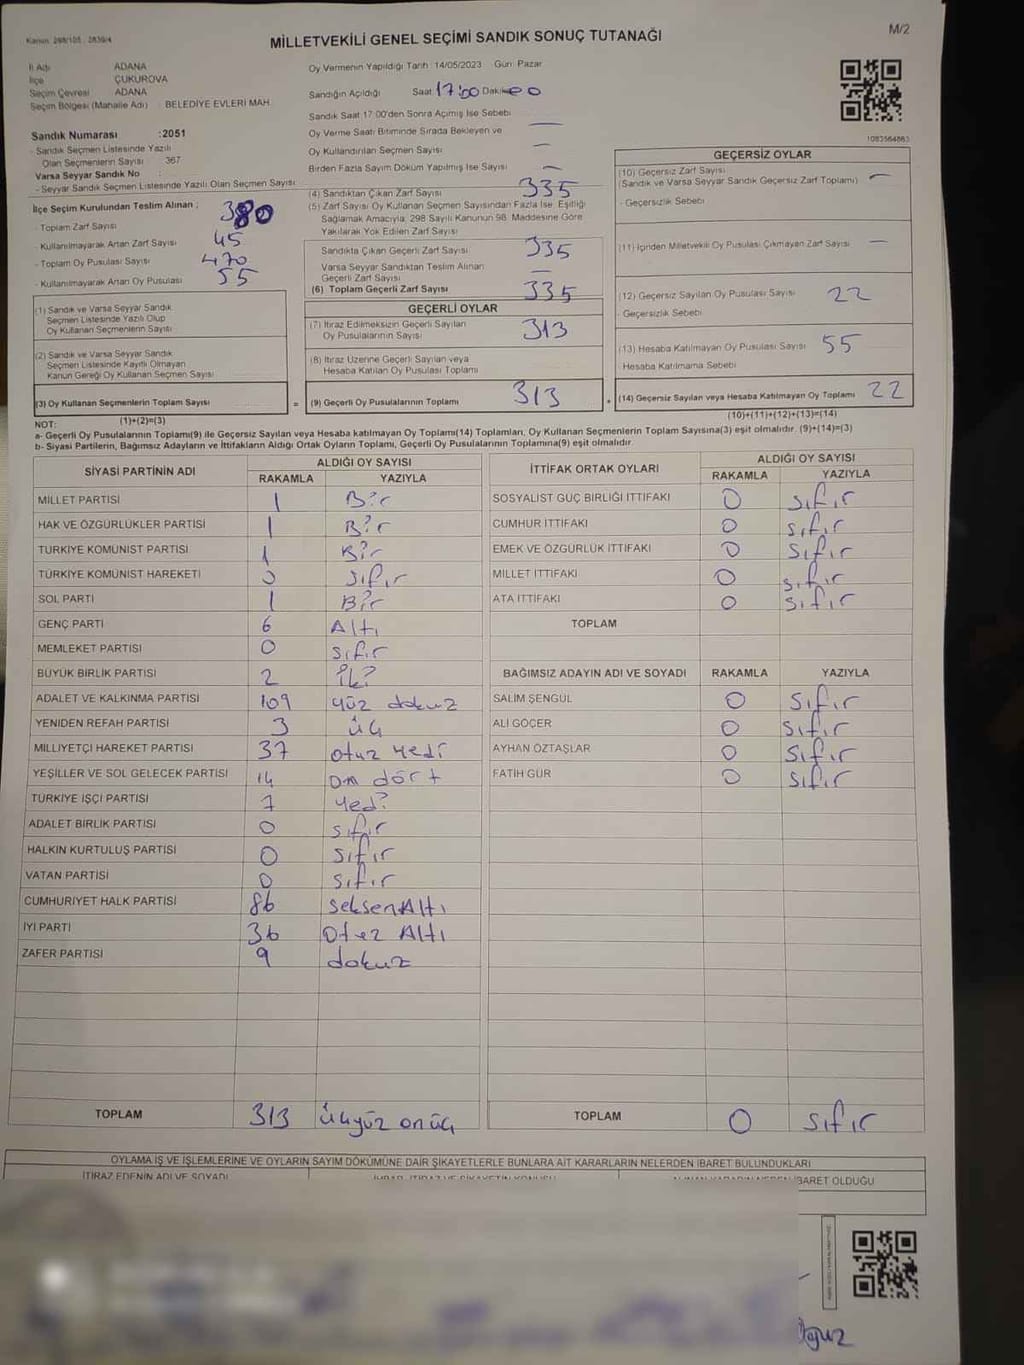 Kanun: 298/105 , 2839/4
M/2
MİLLETVEKİLİ GENEL SEÇİMİ SANDIK SONUÇ TUTANAĞI
İl Adı ADANA
İlçe ÇUKUROVA
Seçim Çevresi ADANA
Seçim Bölgesi (Mahalle Adı) : BELEDİYE EVLERİ MAH.
Sandık Numarası : 2051
- Sandık Seçmen Listesinde Yazılı
Olan Seçmenlerin Sayısı 367
Varsa Seyyar Sandık No :
- Seyyar Sandık Seçmen Listesinde Yazılı Olan Seçmen Sayısı
İlçe Seçim Kurulundan Teslim Alınan :
- Toplam Zarf Sayısı 380
- Kullanılmayarak Artan Zarf Sayısı 45
- Toplam Oy Pusulası Sayısı 470
- Kullanılmayarak Artan Oy Pusulası 55
(1) Sandık ve Varsa Seyyar Sandık
Seçmen Listesinde Yazılı Olup
Oy Kullanan Seçmenlerin Sayısı
(2) Sandık ve Varsa Seyyar Sandık
Seçmen Listesinde Kayıtlı Olmayan
Kanun Gereği Oy Kullanan Seçmen Sayısı
(3) Oy Kullanan Seçmenlerin Toplam Sayısı =
(1)+(2)=(3)
Oy Vermenin Yapıldığı Tarih : 14/05/2023 Gün: Pazar
Sandığın Açıldığı Saat 17:00 Dakika 00
Sandık Saat 17:00'den Sonra Açılmış İse Sebebi
Oy Verme Saati Bitiminde Sırada Bekleyen ve —
Oy Kullandırılan Seçmen Sayısı —
Birden Fazla Sayım Döküm Yapılmış İse Sayısı —
(4) Sandıktan Çıkan Zarf Sayısı 335
(5) Zarf Sayısı Oy Kullanan Seçmen Sayısından Fazla İse, Eşitliği
Sağlamak Amacıyla; 298 Sayılı Kanunun 98. Maddesine Göre
Yakılarak Yok Edilen Zarf Sayısı
Sandıkta Çıkan Geçerli Zarf Sayısı 335
Varsa Seyyar Sandıktan Teslim Alınan
Geçerli Zarf Sayısı —
(6) Toplam Geçerli Zarf Sayısı 335
GEÇERLİ OYLAR
(7) İtiraz Edilmeksizin Geçerli Sayılan
Oy Pusulalarının Sayısı 313
(8) İtiraz Üzerine Geçerli Sayılan veya
Hesaba Katılan Oy Pusulası Toplamı
(9) Geçerli Oy Pusulalarının Toplamı 313 +
1083564863
GEÇERSİZ OYLAR
(10) Geçersiz Zarf Sayısı —
(Sandık ve Varsa Seyyar Sandık Geçersiz Zarf Toplamı)
- Geçersizlik Sebebi
(11) İçinden Milletvekili Oy Pusulası Çıkmayan Zarf Sayısı —
(12) Geçersiz Sayılan Oy Pusulası Sayısı 22
- Geçersizlik Sebebi
(13) Hesaba Katılmayan Oy Pusulası Sayısı 55
Hesaba Katılmama Sebebi
(14) Geçersiz Sayılan veya Hesaba Katılmayan Oy Toplamı 22
(10)+(11)+(12)+(13)=(14)
NOT:
a- Geçerli Oy Pusulaları Toplamı(9) ile Geçersiz Sayılan veya Hesaba katılmayan Oy Toplamı(14) Toplamları, Oy Kullanan Seçmenlerin Toplam Sayısına(3) eşit olmalıdır. (9)+(14)=(3)
b- Siyasi Partilerin, Bağımsız Adayların ve İttifakların Aldığı Ortak Oyların Toplamı, Geçerli Oy Pusulalarının Toplamına(9) eşit olmalıdır.
SİYASİ PARTİNİN ADI ALDIĞI OY SAYISI
RAKAMLA YAZIYLA
MİLLET PARTİSİ 1 Bir
HAK VE ÖZGÜRLÜKLER PARTİSİ 1 Bir
TÜRKİYE KOMÜNİST PARTİSİ 1 Bir
TÜRKİYE KOMÜNİST HAREKETİ 0 sıfır
SOL PARTİ 1 Bir
GENÇ PARTİ 6 Altı
MEMLEKET PARTİSİ 0 sıfır
BÜYÜK BİRLİK PARTİSİ 2 İki
ADALET VE KALKINMA PARTİSİ 109 yüz dokuz
YENİDEN REFAH PARTİSİ 3 üç
MİLLİYETÇİ HAREKET PARTİSİ 37 otuz yedi
YEŞİLLER VE SOL GELECEK PARTİSİ 14 on dört
TÜRKİYE İŞÇİ PARTİSİ 7 yedi
ADALET BİRLİK PARTİSİ 0 sıfır
HALKIN KURTULUŞ PARTİSİ 0 sıfır
VATAN PARTİSİ 0 sıfır
CUMHURİYET HALK PARTİSİ 86 Seksen Altı
İYİ PARTİ 36 Otuz Altı
ZAFER PARTİSİ 9 dokuz
TOPLAM 313 üçyüz onüç
İTTİFAK ORTAK OYLARI ALDIĞI OY SAYISI
RAKAMLA YAZIYLA
SOSYALİST GÜÇ BİRLİĞİ İTTİFAKI 0 sıfır
CUMHUR İTTİFAKI 0 sıfır
EMEK VE ÖZGÜRLÜK İTTİFAKI 0 sıfır
MİLLET İTTİFAKI 0 sıfır
ATA İTTİFAKI 0 sıfır
TOPLAM
BAĞIMSIZ ADAYIN ADI VE SOYADI RAKAMLA YAZIYLA
SALİM ŞENGÜL 0 sıfır
ALİ GÖÇER 0 sıfır
AYHAN ÖZTAŞLAR 0 sıfır
FATİH GÜR 0 sıfır
TOPLAM 0 sıfır
OYLAMA İŞ VE İŞLEMLERİNE VE OYLARIN SAYIM DÖKÜMÜNE DAİR ŞİKAYETLERLE BUNLARA AİT KARARLARIN NELERDEN İBARET BULUNDUKLARI
İTİRAZ EDENİN ADI VE SOYADI
İBARET OLDUĞU